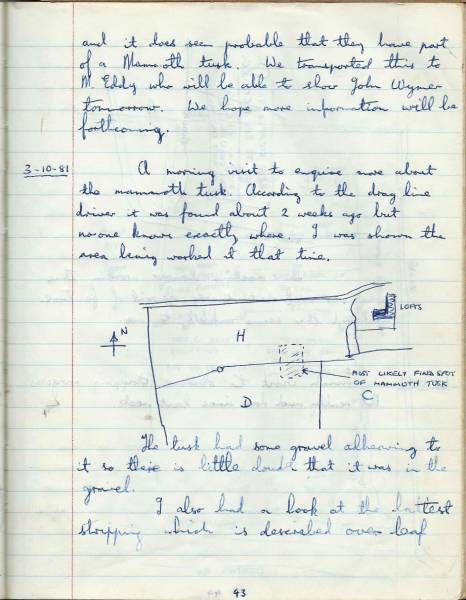 and it does seem probable that they have part
of a Mammoth tusk. We transported this to
M. Eddy who will be able to show John Wymer
tomorrow. We hope more information will be
forthcoming.
3-10-81
A morning visit to enquire more about
the mammoth tusk. According to the drag line
driver it was found about 2 weeks ago but
no-one knows exactly where. I was shown the
area being worked at that time.
LOFTS
N
H
MOST LIKELY FINDSPOT
OF MAMMOTH TUSK
C
D
The tusk had some gravel adhearing to
it so there is little doubt that it was in the
gravel.
I also had a look at the lattest
stripping which is described over leaf
43